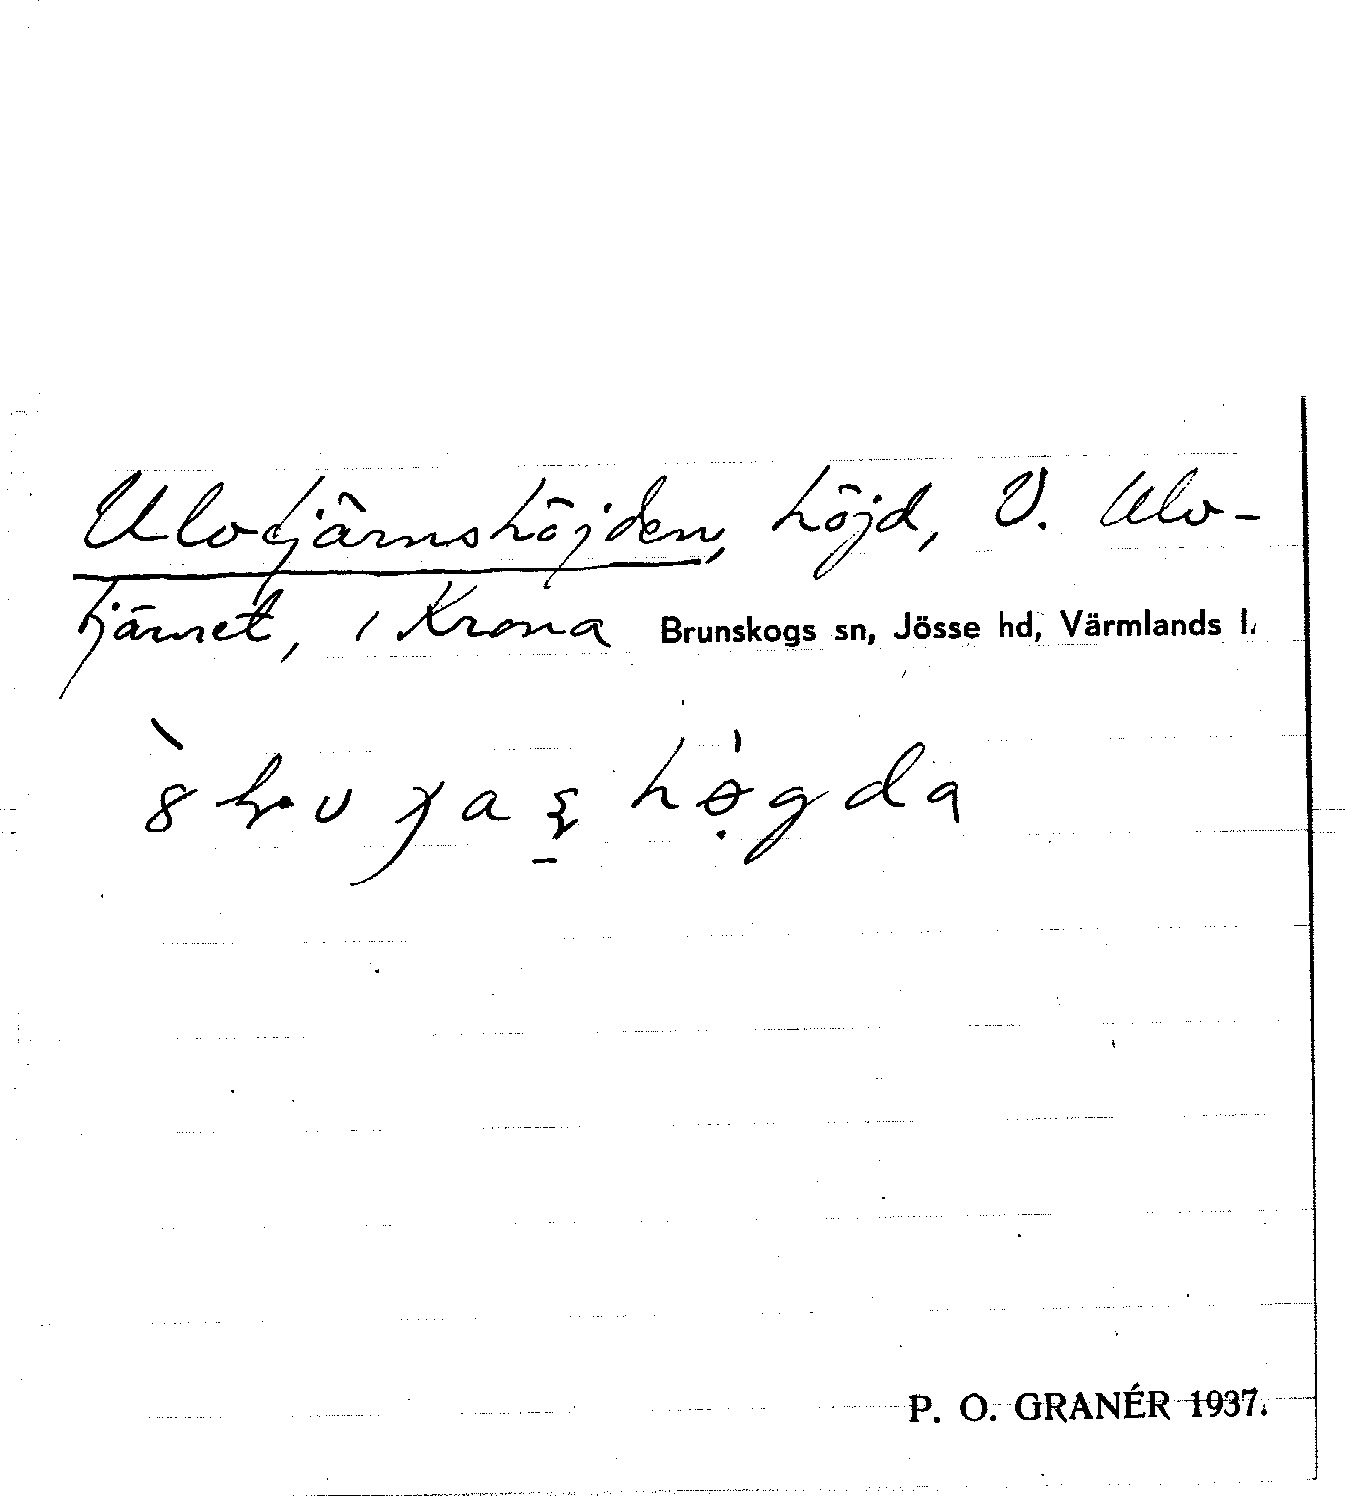 Ulvtjärnshöjden, höjd, V. Ulv-
tjärnet, i Krona Brunskogs sn, Jösse hd, Värmlands l.
P. O. GRANÉR 1937.